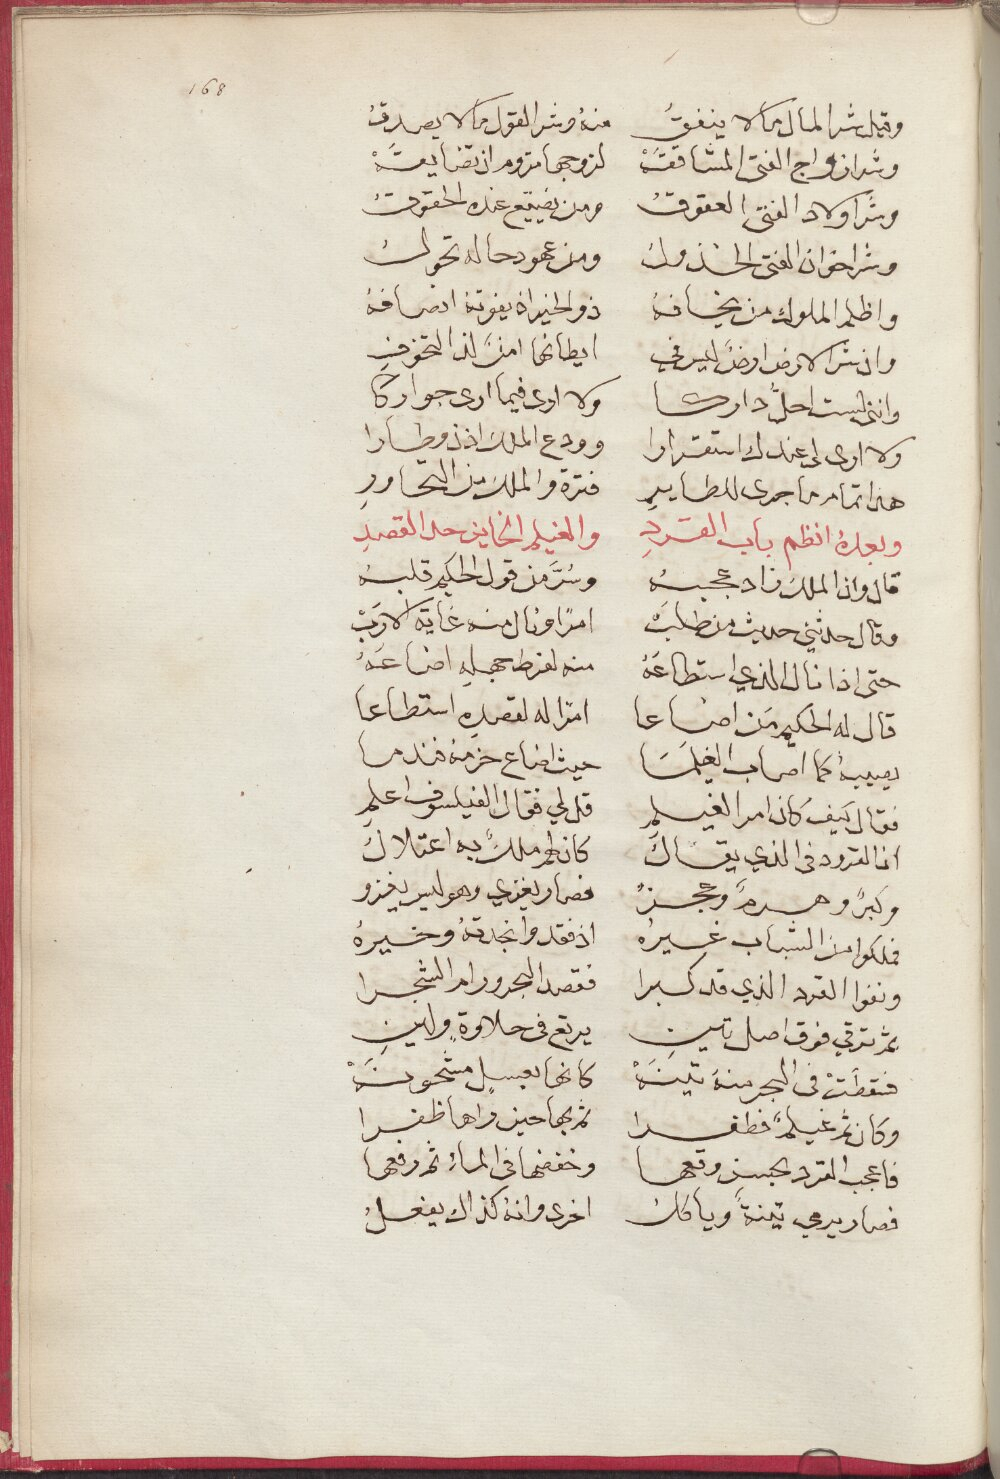 168
وقيل شر المال ما لا ينفقُ منهُ وشر القول ما لا يصدقُ
وشر ازواج الفتى المشاققَهْ لزوجها متروم ان تضايقَهْ
وشر اولاد الفتى العقوقُ ومن تضيع عنده الحقوقُ
وشر اخوان الفتى الخذولُ ومن عهود حاله تحولُ
واظلم الملوك من يخافهُ ذو الخير اذ يفوته انصافهُ
وان شر الارض ارضٌ ليس في ايطانها امنٌ لذا التخوفِ
وانني لست احلُّ داركا ولا ارى فيما ارى جواركا
ولا ارى لي عندك استقرارا وودع الملك اذ ذو طارا
هذا تمام ما جرى للطايرِ فنزة والملك من التحاورِ
وبعدهُ انظم باب القردِ والغيلم الخاين حد القصدِ
قال واذ الملك زاد عجبهُ وسُرَّ من قول الحكيم قلبهُ
وقال حدثني حديث من طلبْ امرًا ونال منه غاية الاربْ
حتى اذا نال الذي استطاعَهُ منه لفرط جهلهِ اضاعَهُ
قال له الحكيم مَن اضاعا امرًا له لقصدهِ استطاعا
يصيبهُ كما اصاب الغيلمَا حيث اضاع حزمهُ فندما
فقال كيف كان امر الغيلمِ قل لي فقال الفيلسوف اعلمِ
ان القرود في الذي يقالُ كان لهم ملكٌ به اعتلالُ
وكبرٌ وهرمٌ وعجزُ فصار يغزى وهو ليس يغزو
فملكوا من الشباب غيرهُ اذ فقدوا نجدتهُ وخيرهُ
ونفوا القرد الذي قد كبرا فقصد البحر ورام الشجرا
ثم ترقي فوق اصل تينِ يرتع في حلاوةٍ ولينِ
فسقطَتْ في البحر منهُ تينَهْ كانها بعسلٍ مشحونَهْ
وكان ثم غيلمٌ فطفرا ثم بها حين راها ظفرا
فاعجب القرد بحسن وقعها وخفضها في الماءِ ثم رفعها
فصار يرمي تينةً وياكلُ اخرى وانهُ كذاك يفعلُ